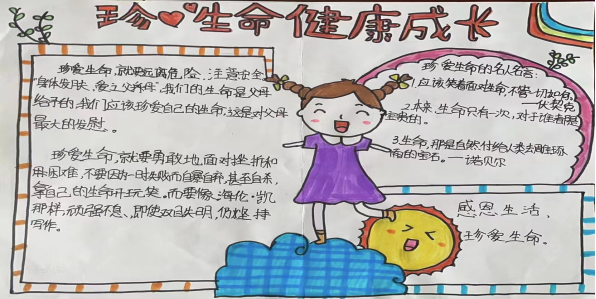 珍❤生命健康成长
珍爱生命,就要远离危险、注意安全
"身体发肤、受之父母",我们的生命是父母
给予的,我们应该珍爱自己的生命,这是对父母
最大的
珍爱生命,就要勇敢地面对挫折和
困难,不要因为一时失败而自暴自弃,甚至自杀,
拿自己的生命开玩笑。而要像海伦·凯
那样,顽强不息、即使双目失明,仍坚持
写作。
珍爱生命的名人名言:
1.应该笑着面对生活,不管一切如何。
——伏契克
2.本来,生命只有一次,对于谁都是
宝贵的。
3.生命,那是自然付给人类去雕琢
的宝石。——诺贝尔
感恩生活、
珍爱生命。